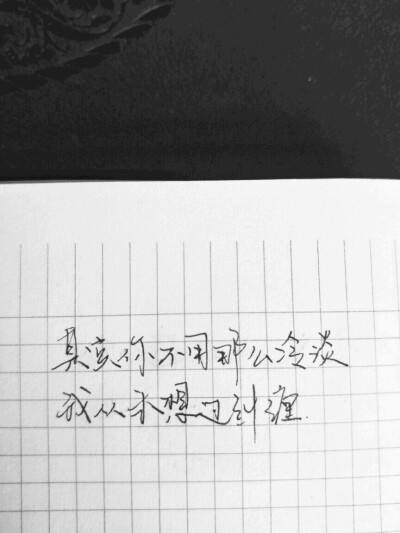 其实你不用那么冷淡
我从未想过纠缠